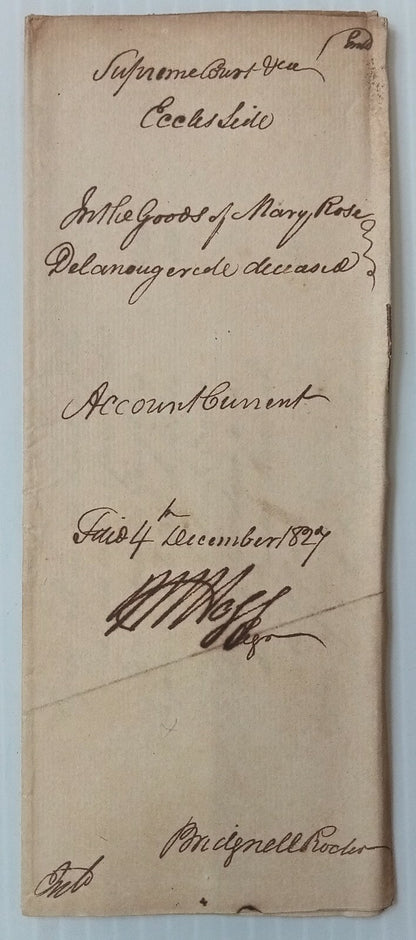 Entd
Supreme Court &ca
Eccles Side
In the Goods of Mary Rose
Delanougerede deceased
Account Current
Filed 4th December 1827
Hogg
Regr
Bridgnell